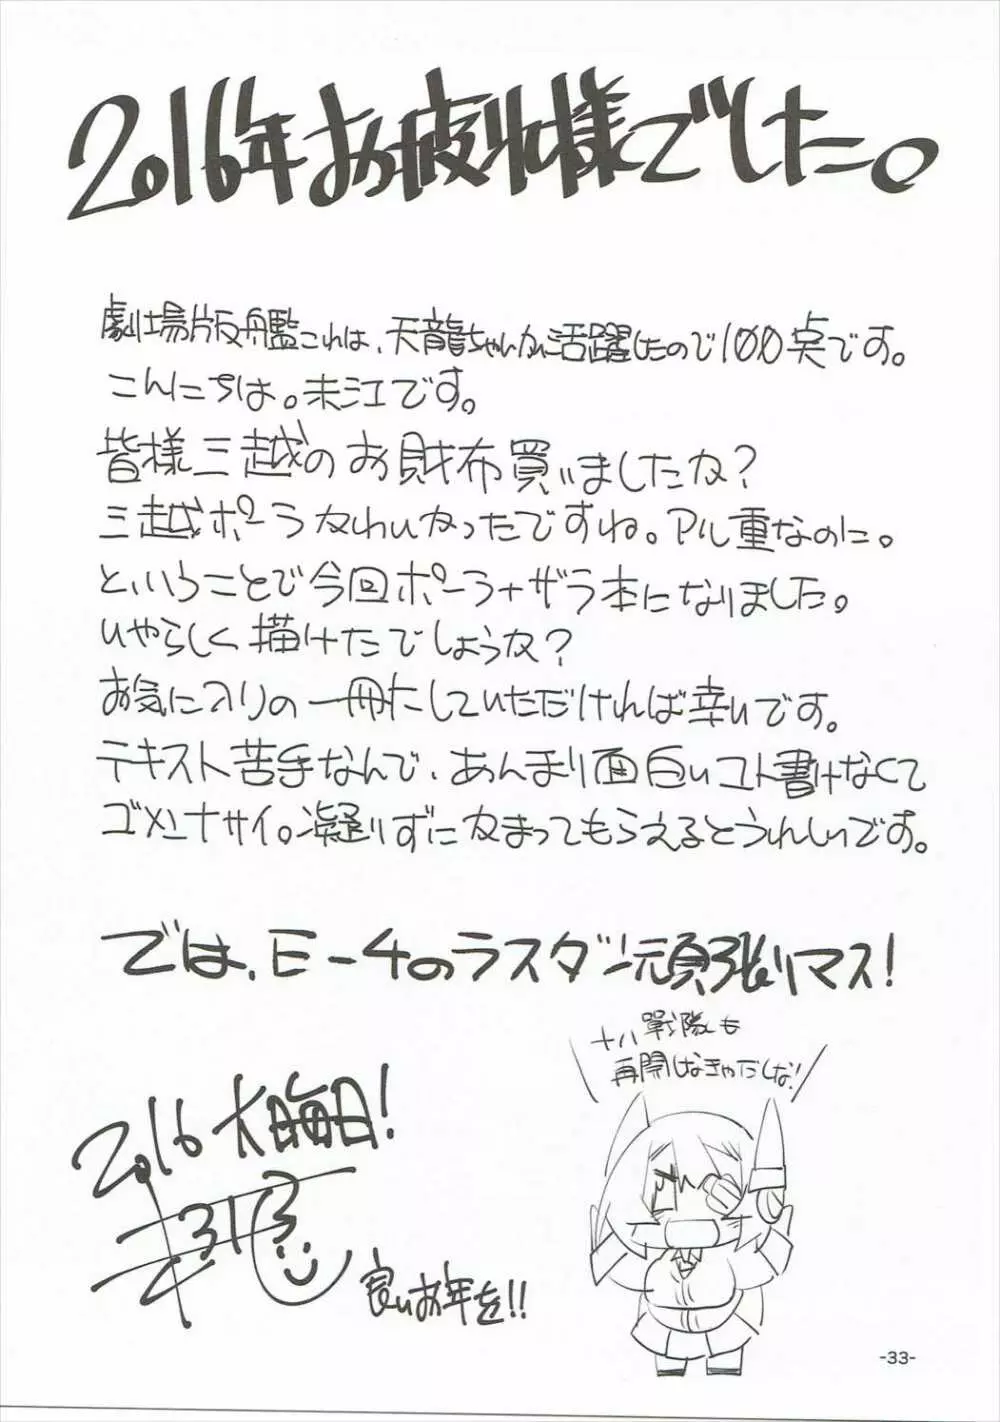 2016年お疲れ様でした。
劇場版艦これは、天龍ちゃんが活躍したので100点です。
こんにちは。未江です。
皆様三越のお財布買いましたか？
三越ポーラかわいかったですね。アル重なのに。
ということで今回ポーラ+ザラ本になりました。
いやらしく描けたでしょうか？
お気に入りの一冊にしていただければ幸いです。
テキスト苦手なんで、あんまり面白いコト書けなくて
ゴメンナサイ。凝りずにかまってもらえるとうれしいです。
では、E-4のラスダン頑張りマス！
十八戦隊も
再開しなきゃだしな！
2016大晦日！
良いお年を!!
-33-